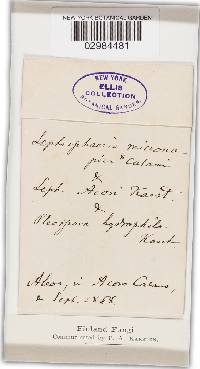 NEW YORK BOTANICAL GARDEN
02984481
NEW YORK
ELLIS
COLLECTION
BOTANICAL GARDEN.
Leptosphaeria microsco-
pica Calami
&
Lept. Acori Karst.
&
Pleospora hydrophila
Karst
in Acoro
Sept. 1868.
Finland Fungi
Communicated by P. A. KARSTEN.